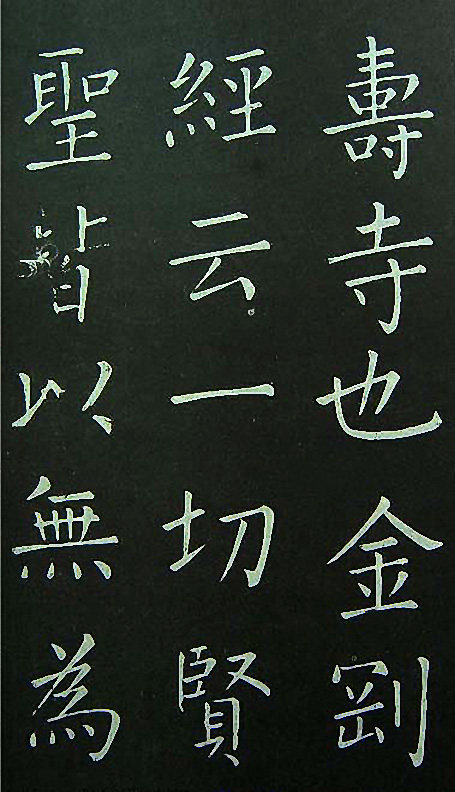 壽寺也金剛
經云一切賢
聖皆以無為